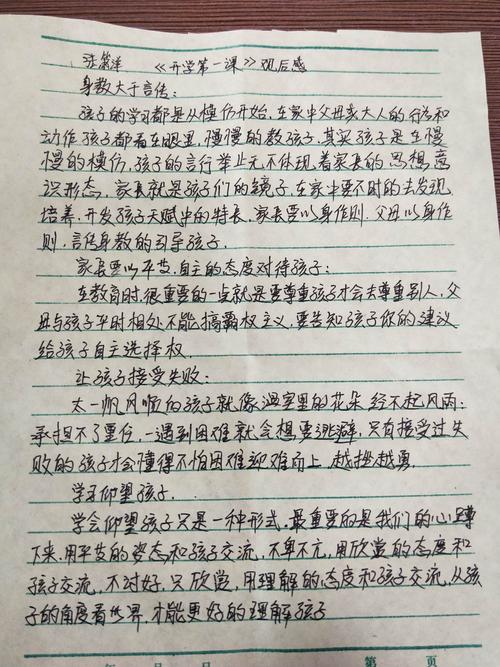 《开学第一课》观后感
身教大于言传：
孩子的学习都是从模仿开始，在家中父母亲大人的行为和
动作孩子都看在眼里，慢慢的教孩子，其实孩子是在慢
慢的模仿，孩子的言行举止无不体现着家长的思想，意
识形态，家长就是孩子们的镜子，在家中要不时的去发现
培养，开发孩子天赋中的特长，家长要以身作则，父母以身作
则，言传身教的引导孩子。
家长要以平等、自主的态度对待孩子：
在教育时，很重要的一点就是要尊重孩子才会去尊重别人，父
母与孩子平时相处不能搞霸权主义，要告知孩子你的建议
给孩子自主选择权。
让孩子接受失败：
太一帆风顺的孩子就像温室里的花朵经不起风雨；
承担不了重任，一遇到困难就会想要逃避，只有接受过失
败的孩子才会懂得不怕困难迎难而上，越挫越勇。
学习仰望孩子。
学会仰望孩子只是一种形式，最重要的是我们的心蹲
下来，用平等的姿态和孩子交流，不卑不亢，用欣赏的态度和
孩子交流，不讨好，只欣赏，用理解的态度和孩子交流，从孩
子的角度看世界，才能更好的理解孩子。
年 月 日 第 页